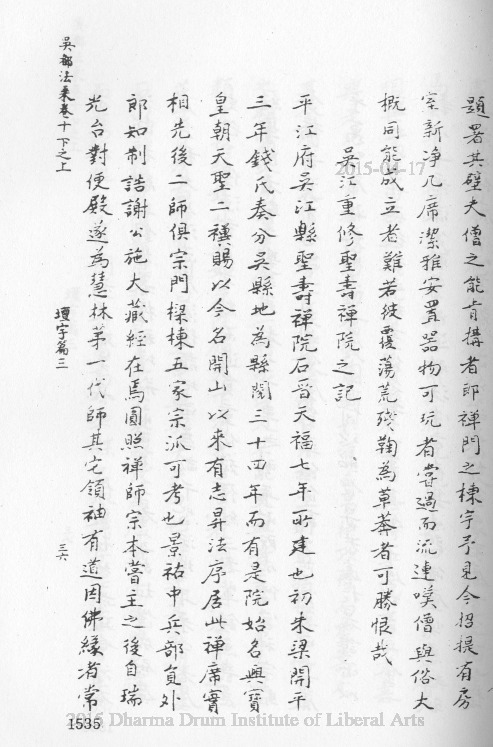 題署其壁夫僧之能肯搆者即禪門之棟宇予見今招提有房
室新淨几席潔雅安置器物可玩者嘗過而流連嘆僧與俗大
概同能成立者難若彼覆蕩荒殘鞠為草莽者可勝恨哉
吳江重修聖壽禪院之記
平江府吳江縣聖壽禪院石晉天福七年所建也初朱梁開平
三年錢氏奏分吳縣地為縣閱三十四年而有是院始名興寶
皇朝天聖二禩賜以今名開山以來有志昇法序居此禪席實
相先後二師俱宗門樑棟五家宗派可考也景祐中兵部負外
郎知制誥謝公施大藏經在焉圓照禪師宗本嘗主之後自瑞
光台對便殿遂為慧林第一代師其它領袖有道因佛緣者常
吳都法乘卷十下之上
壇宇篇三
三六
1535
2015-04-17
2015 Dharma Drum Institute of Liberal Arts